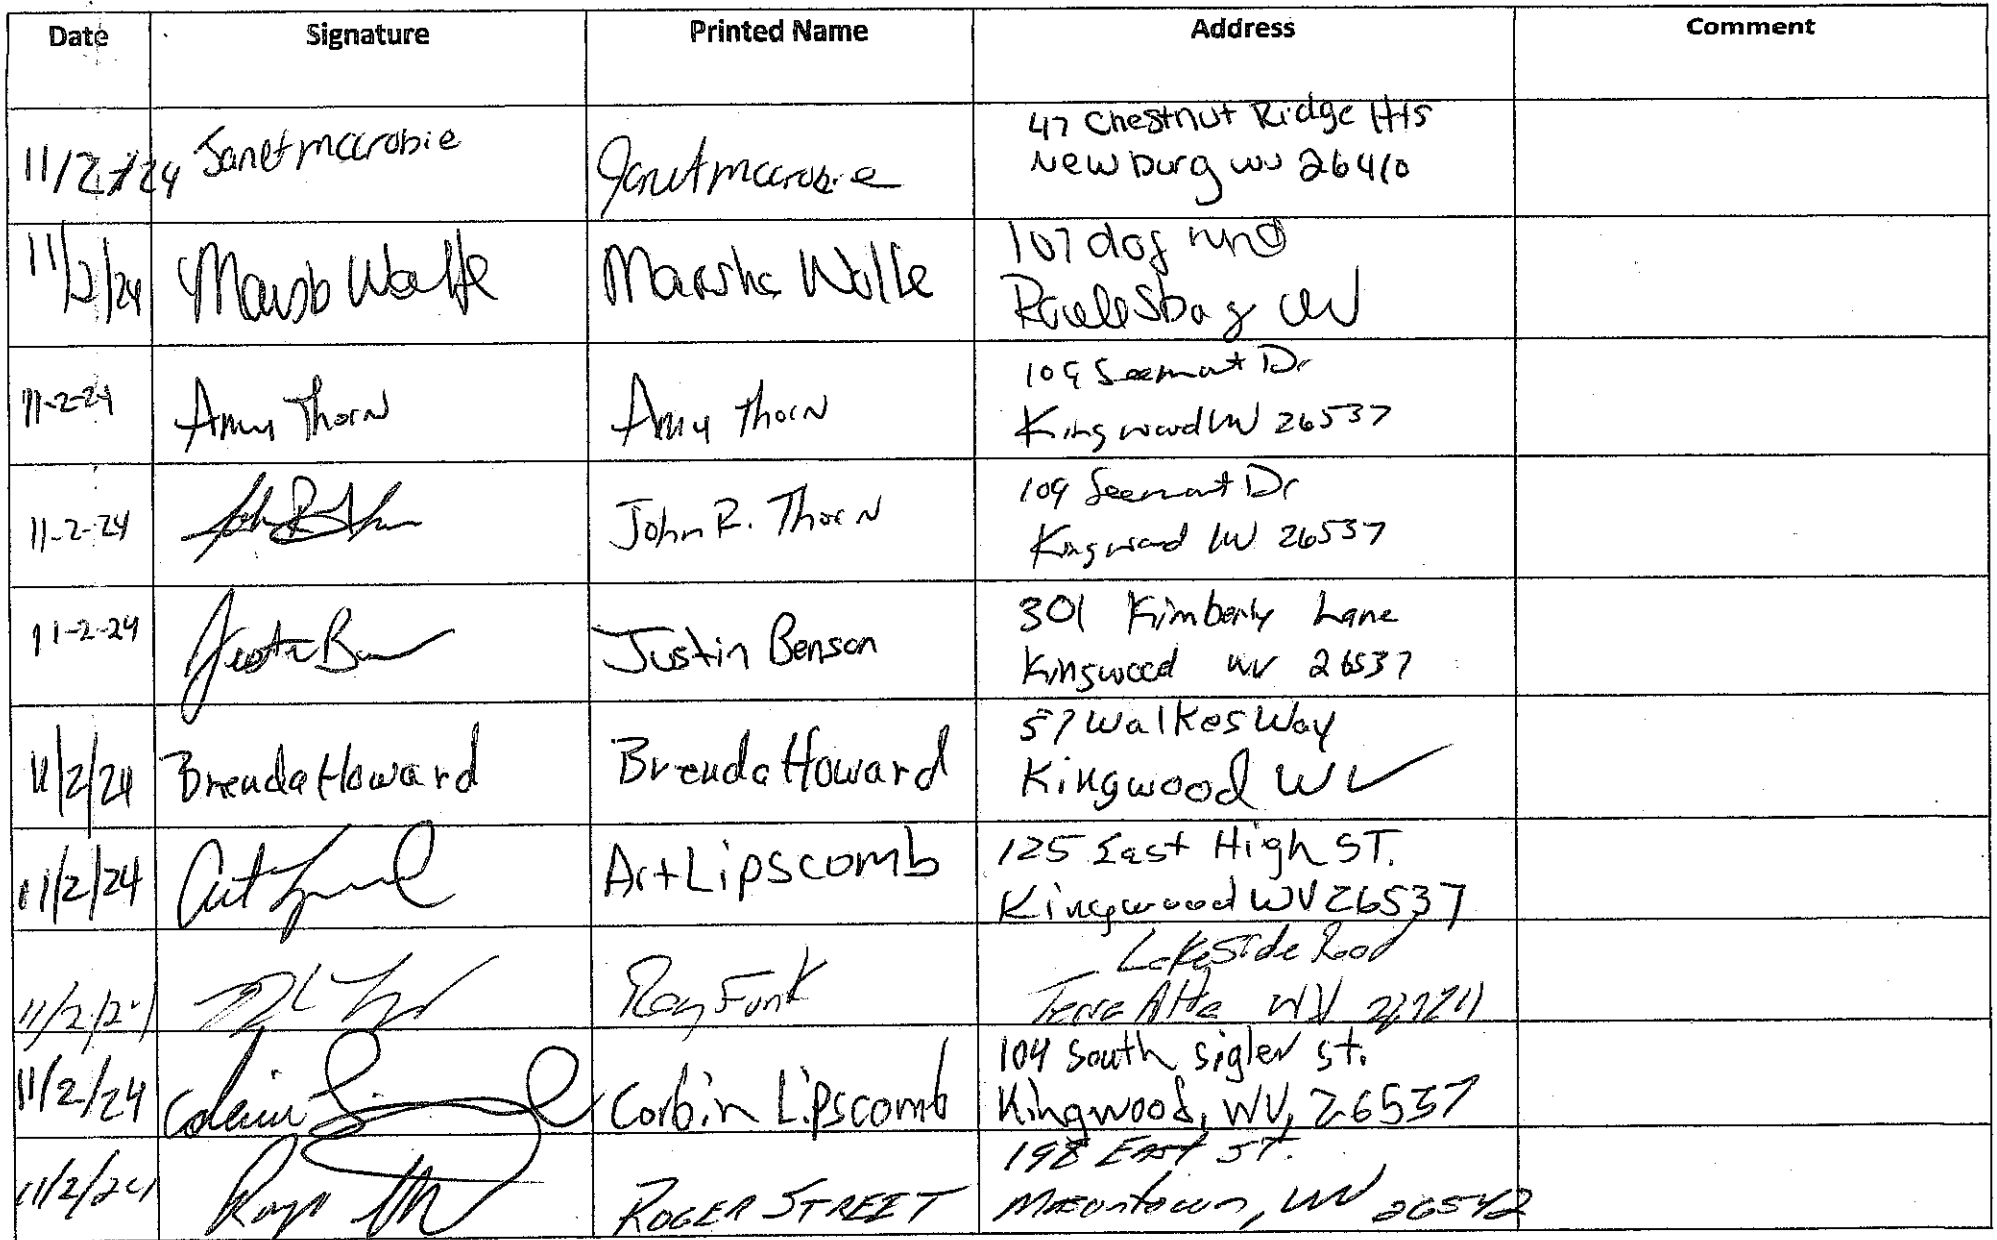 Date Signature Printed Name Address Comment
11/2/24 Janet mccrobie Janet mccrobie 47 Chestnut Ridge Hts
Newburg WV 26410
11/2/24 Marsha Wolfe Marsha Wolfe 107 dog run
Rowlesbag WV
11-2-24 Amy Thorn Amy Thorn 109 Dr
Kingwood WV 26537
11-2-24 John R. Thorn 109 Dr
Kingwood WV 26537
11-2-24 Justin Benson 301 Kimberly Lane
Kingwood WV 26537
11/2/24 Brenda Howard Brenda Howard 57 Walkes Way
Kingwood WV
11/2/24 Art Lipscomb 125 East High ST.
Kingwood WV 26537
11/2/24 Ray Funk Lakeside Road
Terra Alta WV
11/2/24 Corbin Lipscomb 104 South Sigler St.
Kingwood, WV, 26537
11/2/24 ROGER STREET 198 EAST ST.
Masontown, WV 26542